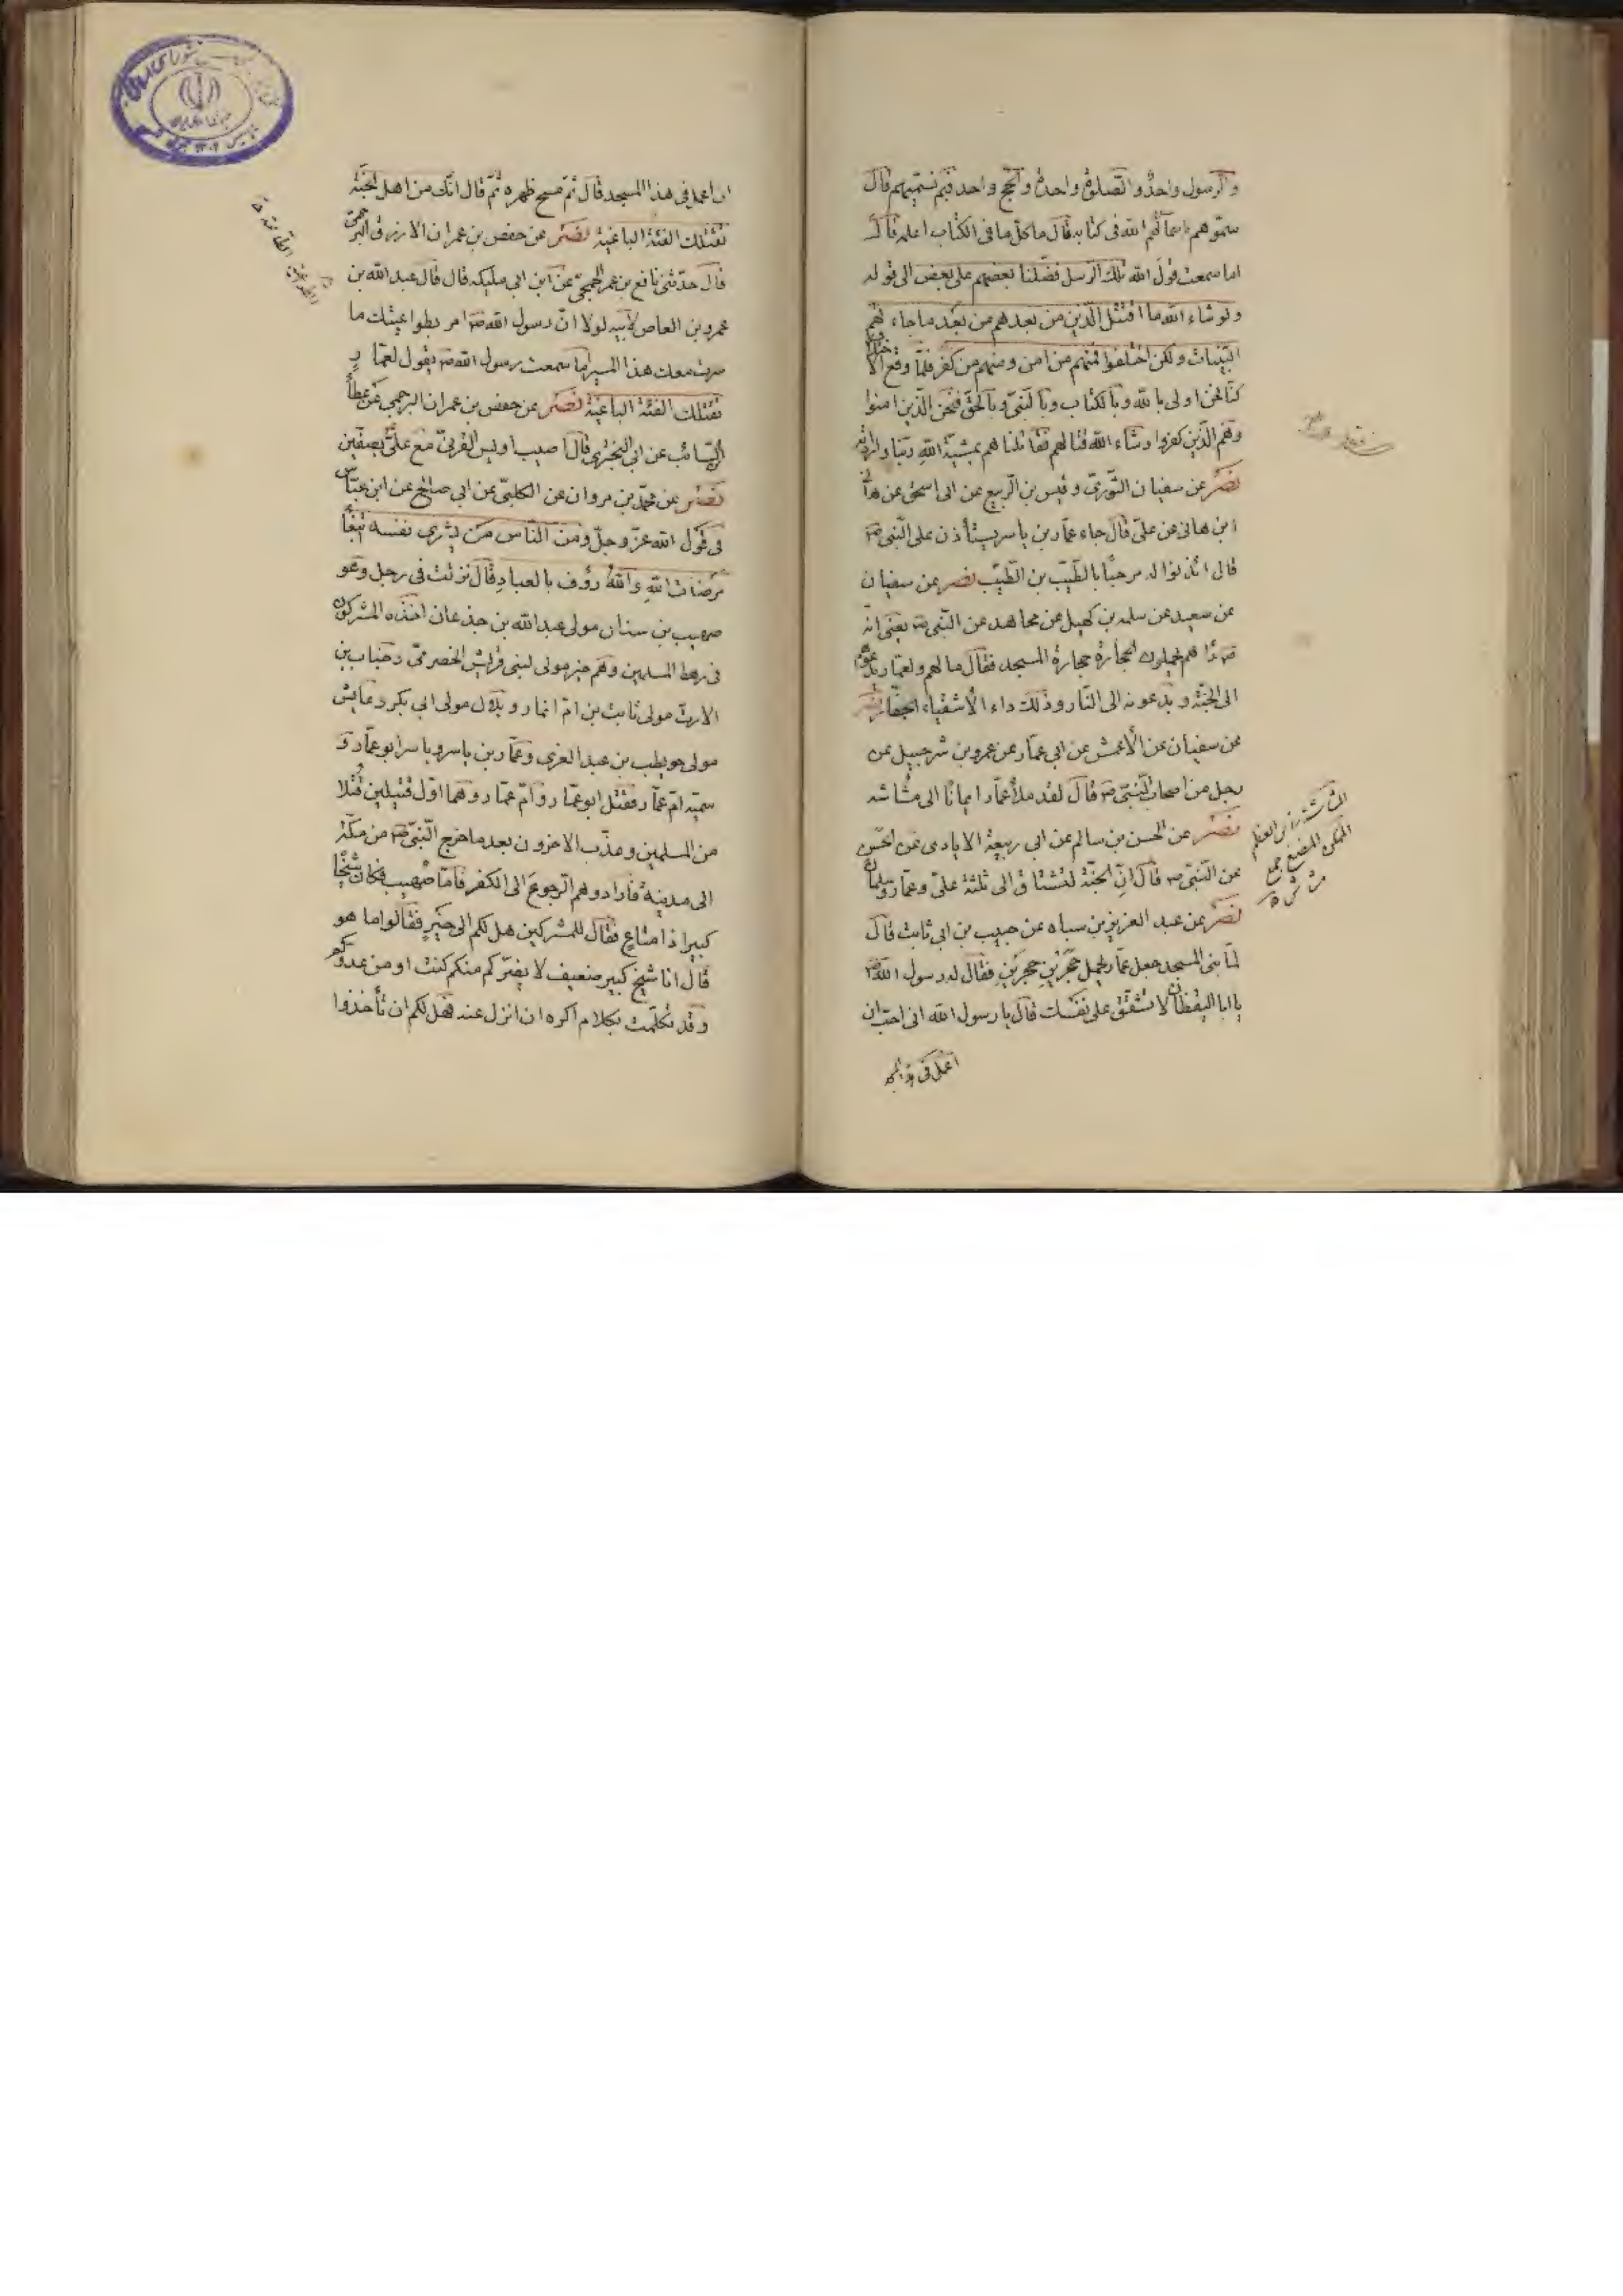 والرسول واحدٌ والصلوة واحدة والحج واحد فبم نسمّيهم قال
سمّوهم باسمائهم الله فى كتابه قال ما كلّ ما فى الكتاب اعلمه قال
اما سمعت قول الله تلك الرسل فضّلنا بعضهم على بعض الى قوله
ولو شاء الله ما اقتتل الّذين من بعدهم من بعد ما جاءتهم
البيّنات ولكن اختلفوا فمنهم من امن ومنهم من كفر فلمّا وقع الاختلاف
كنّا نحن اولى بالله وبالكتاب وبالنبىّ وبالحقّ فنحن الّذين امنوا
وهم الّذين كفروا وشاء الله قتالهم فقاتلناهم بمشيّة الله ربّنا وارادته
نصر عن سفيان الثورىّ وقيس بن الرّبيع عن ابى اسحق عن هانى
ابن هانى عن علىّ قال جاء عمّار بن ياسر يستأذن على النّبىّ ص
قال ائذنوا له مرحبًا بالطّيّب بن الطّيّب نصر عن سفيان
عن سعيد عن سلمه بن كهيل عن مجاهد عن النّبىّ ص يعنى انّه
هم يحملون الحجارة حجارة المسجد فقال ما لهم ولعمّار يدعوهم
الى الجنّة ويدعونه الى النّار وذلك داء الأشقياء الفجّار نصر
عن سفيان عن الأعمش عن ابى عمّار عن عمرو بن شرحبيل عن
رجل من اصحاب النّبىّ ص قال لقد ملأ عمّار ايمانًا الى مُشاشه
نصر عن الحسن بن سالم عن ابى ربيعة الايادى عن الحسن
عن النّبىّ ص قال انّ الجنّة لتشتاق الى ثلثة علىّ وعمّار وسلمان
نصر عن عبد العزيز بن سياه عن حبيب بن ابى ثابت قال
لمّا بنى المسجد جعل عمّار يحمل حجرَيْنِ حجرَيْنِ فقال له رسول الله ص
يا ابا اليقظان لا تشقّق على نفسك قال يا رسول الله انى احبّ ان
اعمل فى هذا المسجد
ان اعمل فى هذا المسجد قال ثمّ مسح ظهره ثمّ قال انّك من اهل الجنّة
تقتلك الفئة الباغية نصر عن حفص بن عمران الازرق البرجمىّ
قال حدّثنى نافع بن عمر الجمحىّ عن ابن ابى مليكه قال قال عبد الله بن
عمرو بن العاص لأبيه لولا انّ رسول الله ص امر بطواعيتك ما
سرت معك هذا المسير اما سمعت رسول الله ص يقول لعمّار
تقتلك الفئة الباغية نصر عن حفص بن عمران البرجمىّ عن عطاء بن
السّائب عن ابى البخترى قال اصيب اويس القرنىّ مع علىّ بصفّين
نصر عن محمّد بن مروان عن الكلبىّ عن ابى صالح عن ابن عبّاس
فى قول الله عزّ وجلّ ومن النّاس من يشرى نفسه ابتغاء
مرضات الله والله رؤف بالعباد قال نزلت فى رجل وهو
صهيب بن سنان مولى عبد الله بن جذعان اخذه المشركون
فى رهط المسلمين وهم خير مولى لبنى قريش الحضرمىّ وخباب بن
الارتّ مولى ثابت بن امّ انمار وبلال مولى ابى بكر وعايش
مولى حويطب بن عبد العزى وعمّار بن ياسر وياسر ابو عمّار و
سميّه امّ عمّار فقتل ابو عمّار وامّ عمّار وهما اوّل قتيلين قُتلا
من المسلمين وعذّب الاخرون بعد ما خرج النّبىّ ص من مكّة
الى مدينة فارادوهم الرّجوع الى الكفر فامّا صهيب فكان شيخًا
كبيرا ذا متاعٍ فقال للمشركين هل لكم الى خيرٍ فقالوا ما هو
قال انا شيخ كبير ضعيف لا يضرّكم منكم كنت او من عدوّكم
وقد تكلّمت بكلام اكره ان انزل عنه فهل لكم ان تأخذوا